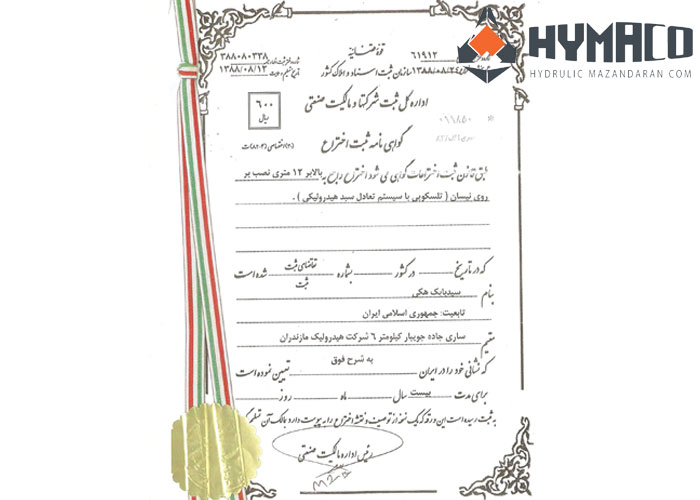 HYMACO
HYDRULIC MAZANDARAN COM
قوهٔ قضائیه
۶۱۹۱۲
۳۸۸۰۸۰۳۳۸
سازمان ثبت اسناد و املاک کشور
۱۳۸۸/۰۸/۱۲
اداره کل ثبت شرکتها و مالکیت صنعتی
۶۰۰
ریال
۰۶۶۸۵۰
گواهی نامه ثبت اختراع
طبق قانون ثبت اختراعات گواهی می شود اختراع راجع به بالابر ۱۲ متری نصب بر
روی نیسان ( تلسکوپی با سیستم تعادل سبد هیدرولیکی ) .
که در تاریخ در کشور بشماره تقاضای ثبت شده است
ثبت
بنام سیدبابک هکی
تابعیت: جمهوری اسلامی ایران
مقیم ساری جاده جویبار کیلومتر ۶ شرکت هیدرولیک مازندران
که نشانی خود را در ایران به شرح فوق تعیین نموده است
برای مدت بیست سال ماه روز
به ثبت رسیده است این ورقه که یک نسخه از توصیف و نقشه اختراع را به پیوست دارد بمالک آن
رئیس اداره مالکیت صنعتی